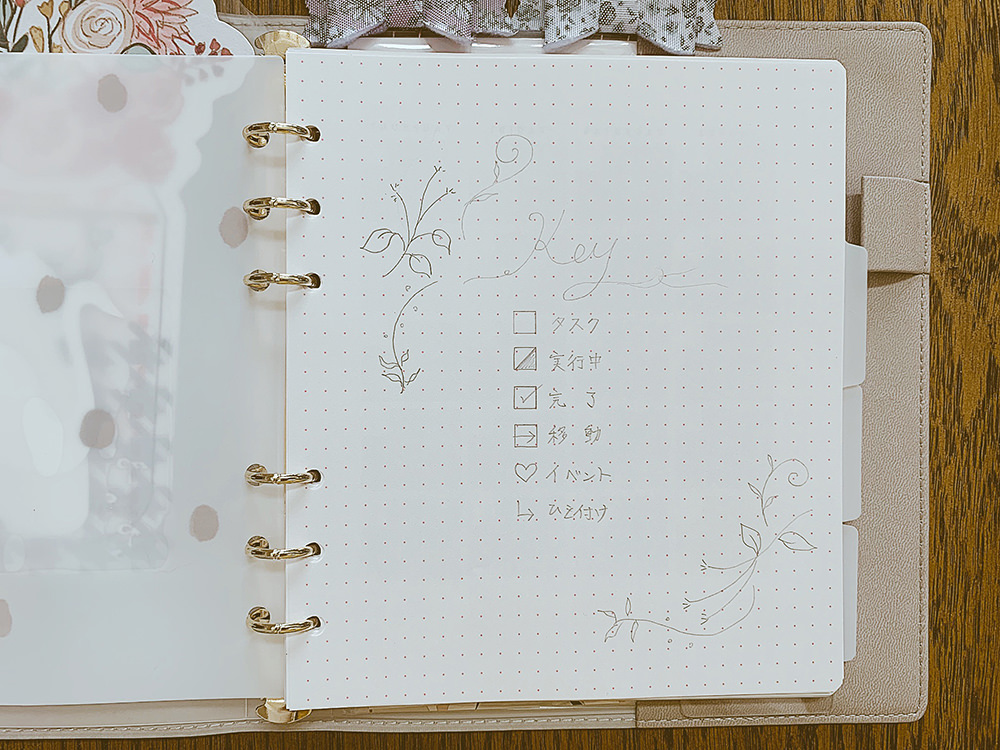 Key
タスク
実行中
完了
移動
イベント
ひも付け